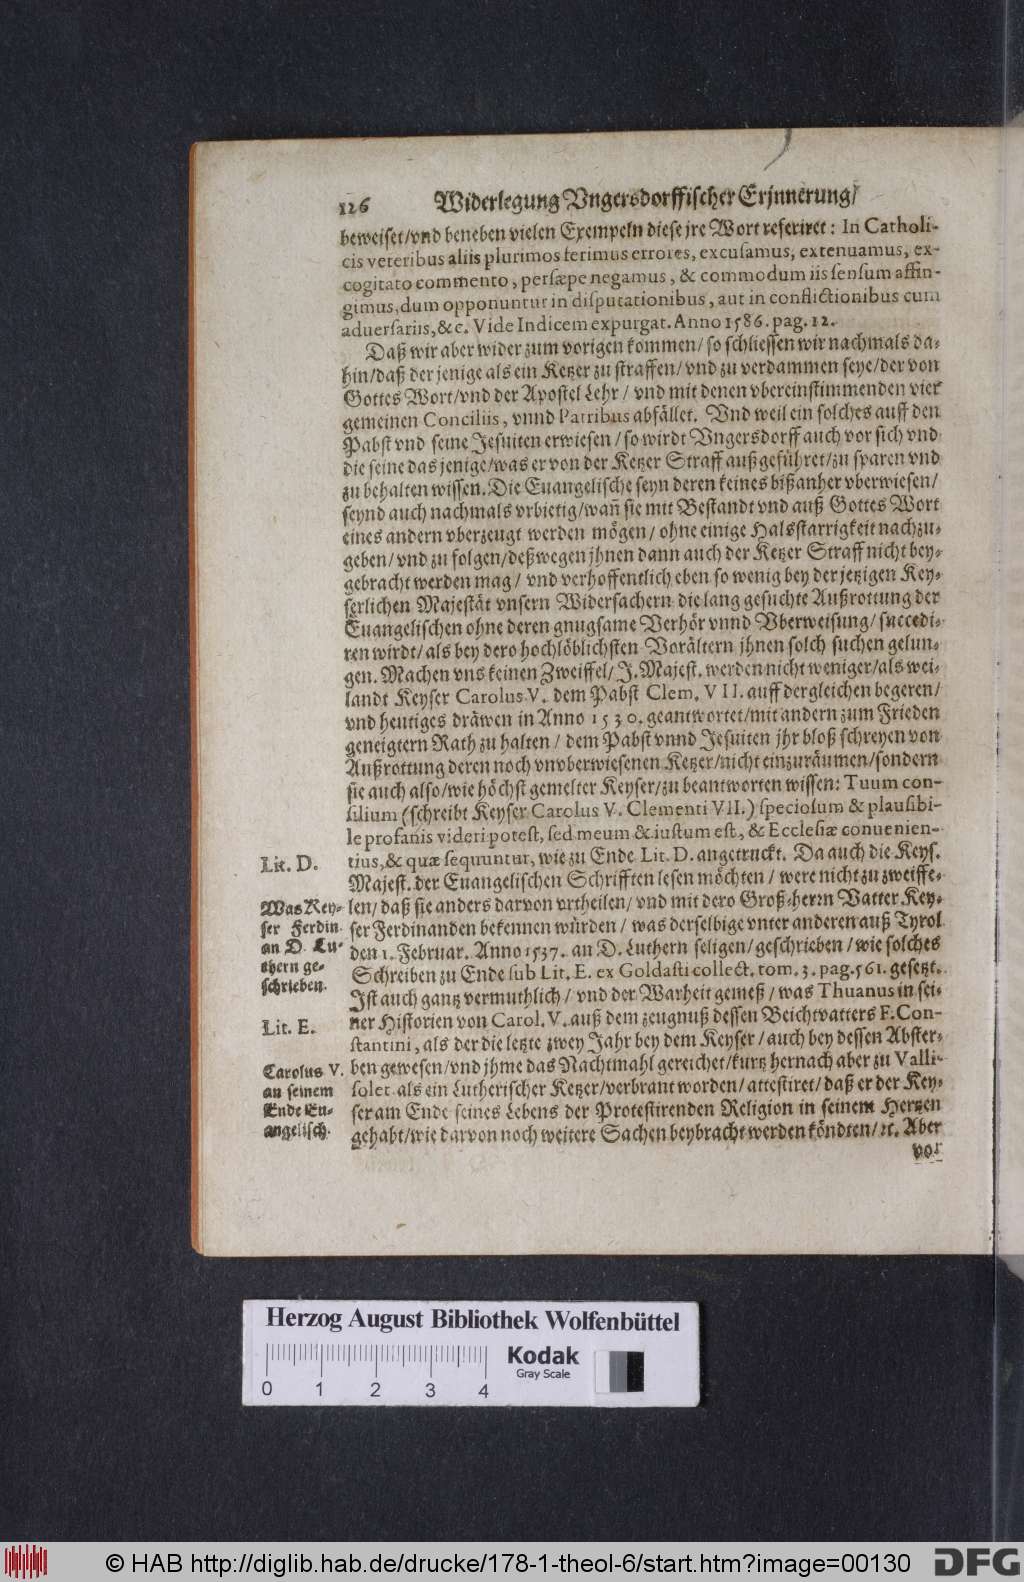 126 Widerlegung Vngersdorffischer Erjnnerung/
beweiset/vnd beneben vielen Exempeln diese jre Wort referiret: In Catholi-
cis veteribus aliis plurimos ferimus errores, excusamus, extenuamus, ex-
cogitato commento, persæpe negamus, & commodum iis sensum affin-
gimus, dum opponuntur in disputationibus, aut in conflictionibus cum
adversariis, &c. Vide Indicem expurgat. Anno 1586. pag. 12.
Daß wir aber wider zum vorigen kommen/ so schliessen wir nachmals da-
hin/daß der jenige als ein Ketzer zu straffen/ vnd zu verdammen seye/der von
Gottes Wort/vnd der Apostel Lehr / vnd mit denen vbereinstimmenden vier
gemeinen Conciliis, vnnd Patribus abfället. Vnd weil ein solches auff den
Pabst vnd seine Jesuiten erwiesen / so wirdt Vngersdorff auch vor sich vnd
die seine das jenige/was er von der Ketzer Straff außgeführet/zu sparen vnd
zu behalten wissen. Die Euangelische seyn deren keines bißanher vberwiesen/
seynd auch nachmals vrbietig/wañ sie mit Bestandt vnd auß Gottes Wort
eines andern vberzeugt werden mögen/ ohne einige Halsstarrigkeit nachzu-
geben/ vnd zu folgen/deßwegen jhnen dann auch der Ketzer Straff nicht bey-
gebracht werden mag/ vnd verhoffentlich eben so wenig bey der jetzigen Key-
serlichen Majestät vnsern Widersachern die lang gesuchte Außrottung der
Euangelischen ohne deren gnugsame Verhör vnnd Vberweisung/ succedi-
ren wirdt/als bey dero hochlöblichsten Vorältern jhnen solch suchen gelun-
gen. Machen vns keinen Zweiffel/ J. Majest. werden nicht weniger/als wei-
landt Keyser Carolus V. dem Pabst Clem. VII. auff dergleichen begeren/
vnd heutiges dräwen in Anno 1530. geantwortet/mit andern zum Frieden
geneigtern Rath zu halten / dem Pabst vnnd Jesuiten jhr bloß schreyen von
Außrottung deren noch vnvberwiesenen Ketzer/nicht einzuräumen/sondern
sie auch also/wie höchst gemelter Keyser/zu beantworten wissen: Tuum con-
silium (schreibt Keyser Carolus V. Clementi VII.) speciosum & plausibi-
le profanis videri potest, sed meum & iustum est, & Ecclesiæ convenien-
Lit. D. tius, & quæ sequuntur, wie zu Ende Lit. D. angetruckt. Da auch die Keys.
Majest. der Euangelischen Schrifften lesen möchten / were nicht zu zweiffe-
Was Key- len/ daß sie anders darvon vrtheilen/ vnd mit dero Groß-herrn Vatter Key-
ser Ferdin. ser Ferdinanden bekennen würden / was derselbige vnter anderen auß Tyrol
an D. Lu- den 1. Februar. Anno 1537. an D. Luthern seligen/geschrieben/ wie solches
thern ge- Schreiben zu Ende sub Lit. E. ex Goldasti collect. tom. 3. pag. 561. gesetzt.
schrieben. Ist auch gantz vermuthlich/ vnd der Warheit gemeß / was Thuanus in sei-
Lit. E. ner Historien von Carol. V. auß dem zeugnuß dessen Beichtvatters F. Con-
stantini, als der die letzte zwey Jahr bey dem Keyser / auch bey dessen Abster-
Carolus V. ben gewesen/vnd jhme das Nachtmahl gereichet/kurtz hernach aber zu Valli-
an seinem solet als ein Lutherischer Ketzer/verbrant worden/ attestiret/ daß er der Key-
Ende Eu- ser am Ende seines Lebens der Protestirenden Religion in seinem Hertzen
angelisch. gehabt/wie darvon noch weitere Sachen beybracht werden köndten/ꝛc. Aber
vor
Herzog August Bibliothek Wolfenbüttel
Kodak
Gray Scale
0 1 2 3 4
© HAB http://diglib.hab.de/drucke/178-1-theol-6/start.htm?image=00130 DFG